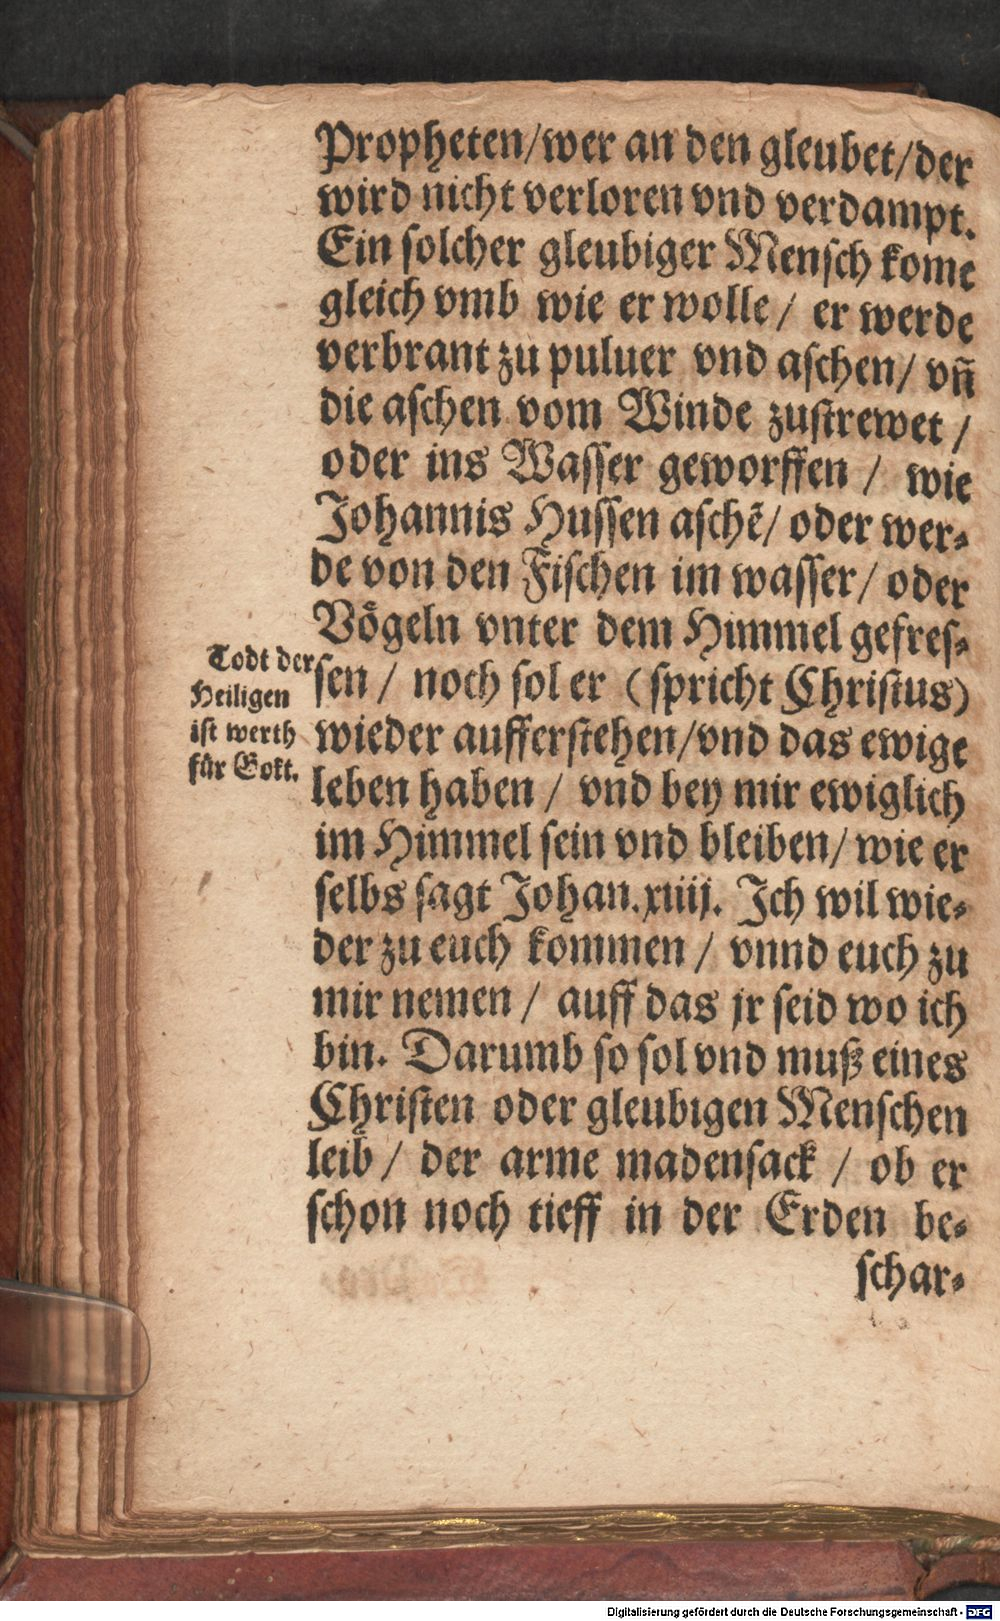 Propheten/wer an den gleubet/der
wird nicht verloren vnd verdampt.
Ein solcher gleubiger Mensch kome
gleich vmb wie er wolle / er werde
verbrant zu puluer vnd aschen/ vñ
die aschen vom Winde zustrewet /
oder ins Wasser geworffen / wie
Johannis Hussen aschẽ/ oder wer-
de von den Fischen im wasser/ oder
Vögeln vnter dem Himmel gefres-
sen / noch sol er (spricht Christus)
wieder aufferstehen/vnd das ewige
leben haben / vnd bey mir ewiglich
im Himmel sein vnd bleiben/ wie er
selbs sagt Johan.xiiij. Ich wil wie-
der zu euch kommen / vnnd euch zu
mir nemen / auff das jr seid wo ich
bin. Darumb so sol vnd muß eines
Christen oder gleubigen Menschen
leib / der arme madensack / ob er
schon noch tieff in der Erden be-
schar-
Todt der
Heiligen
ist werth
für Gott.
Digitalisierung gefördert durch die Deutsche Forschungsgemeinschaft - DFG